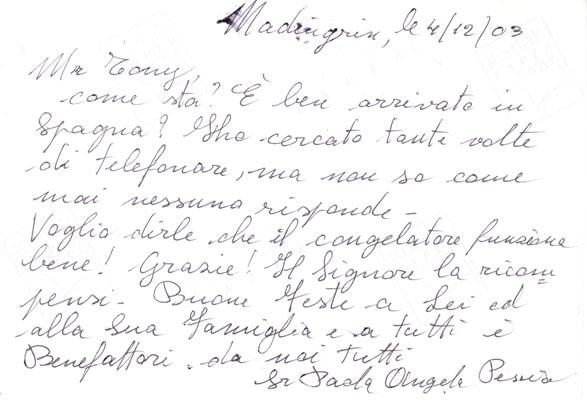 Madingrin, le 4/12/03
Mr Tony,
come sta? È ben arrivato in
Spagna? Gho cercato tante volte
di telefonare, ma non so come
mai nessuno risponde -
Voglio dirle che il congelatore funziona
bene! Grazie! Il Signore la ricom
pensi - Buone Feste a Lei ed
alla Sua Famiglia e a tutti i
Benefattori da noi tutti
Sr Paola Angela